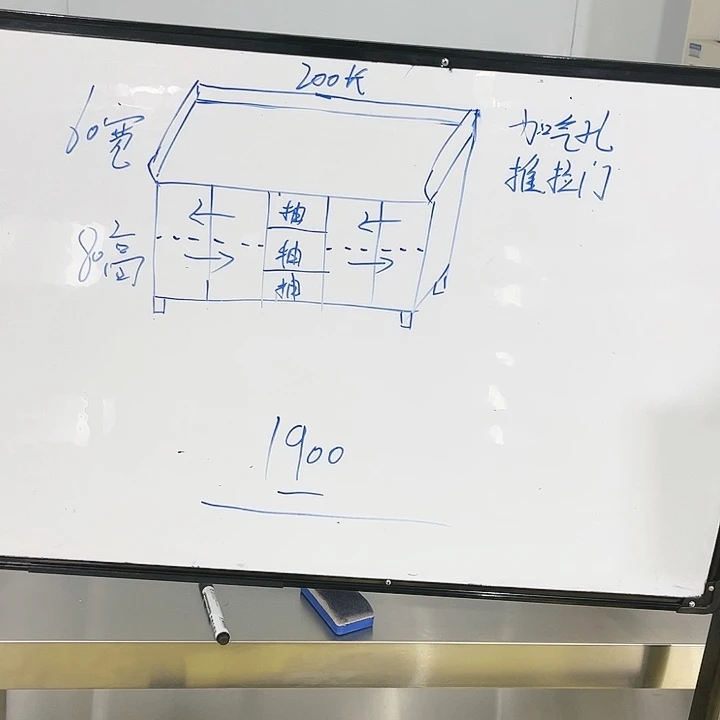 200长
60宽
加气孔
推拉门
80高
抽
抽
抽
1900